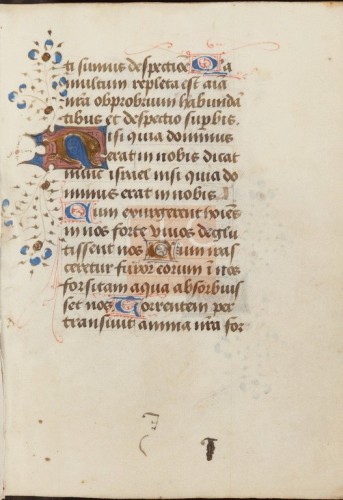 ti sumus despectioe Quia
multum repleta est aīa
nr̄a obprobrium habundā
tibus et despectio supbis.
Nisi quia dominus
erat in nobis dicat
nunc israel nisi quia do
minus erat in nobis.
Cum exurgerent hoīes
in nos forte vivos deglu
tissent nos Cum iras
ceretur furor eorum ī nos
forsitam aqua absorbuis
set nos Torrentem per
transivit anima nr̄a for